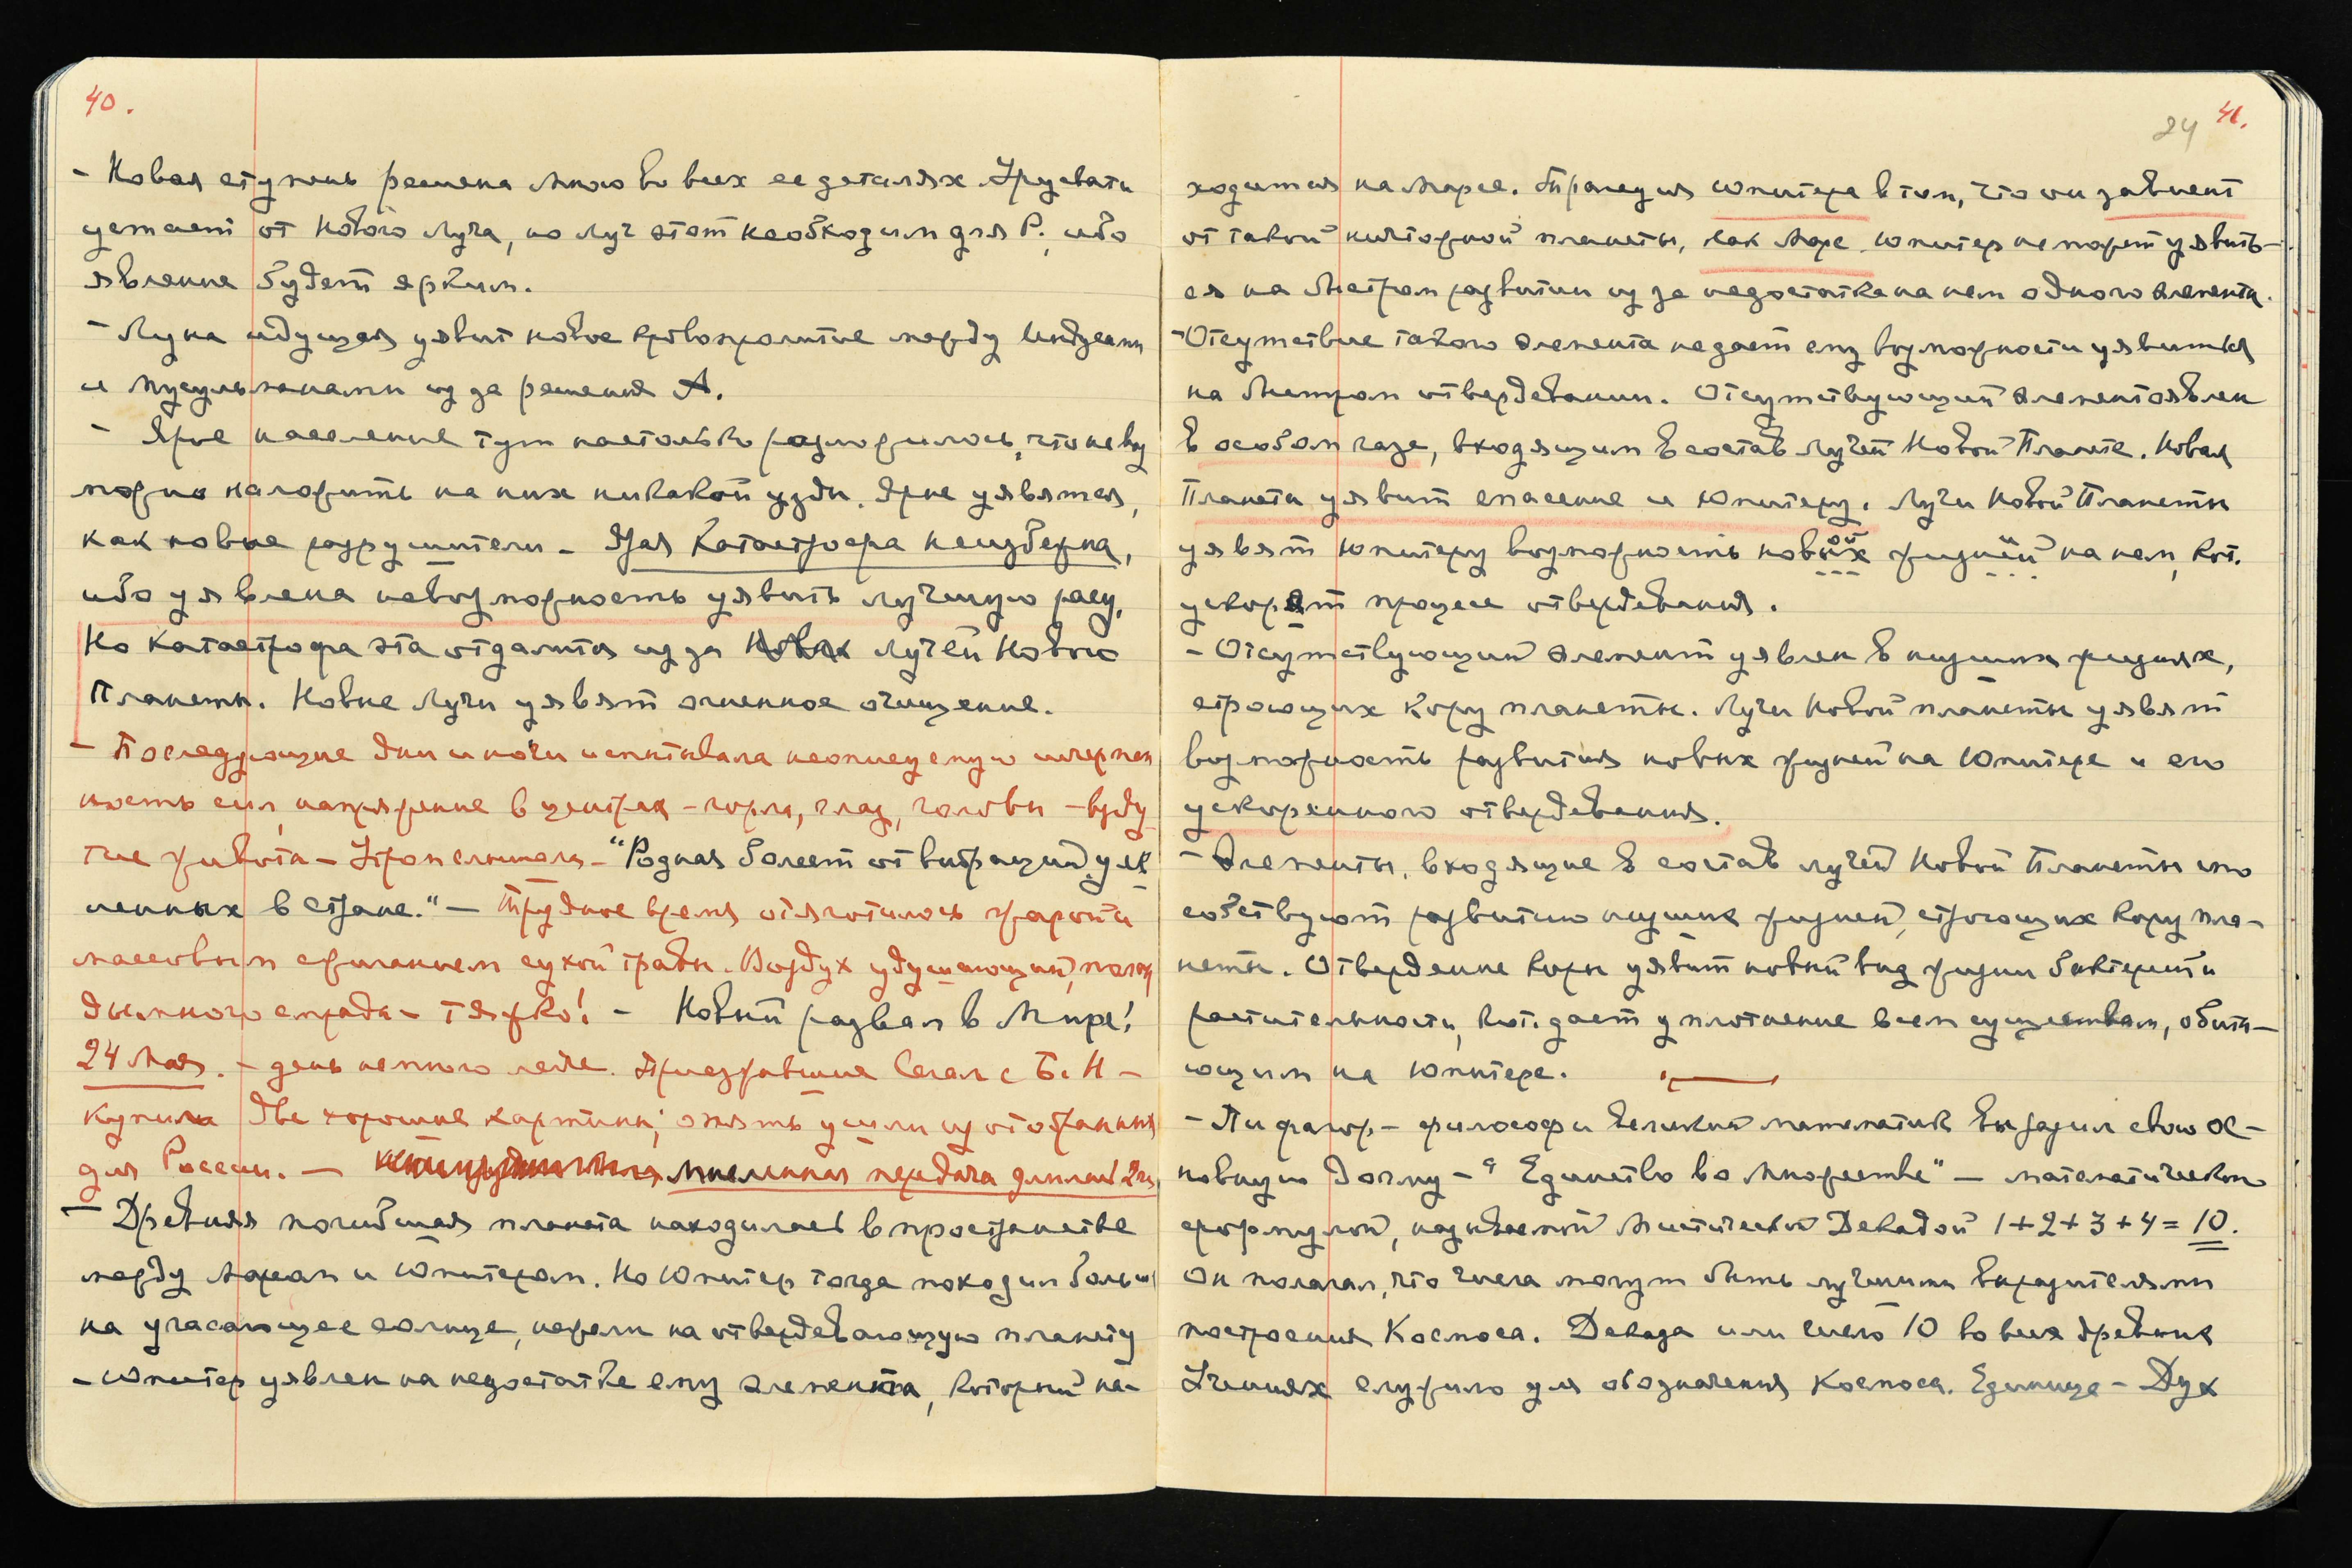 40.
- Новая ступень решена Мною во всех ее деталях. Урусвати
устает от Нового Луча, но луч этот необходим для Р., ибо
явление будет ярким.
- Луна идущая уявит новое кровопролитие между Индусами
и мусульманами из за решения А.
- Ярое население тут настолько размножилось, что невоз
можно наложить на них никакой узды. Ярые уявятся,
как новые разрушители - Ярая Катастрофа неизбежна,
ибо уявлена невозможность уявить лучшую расу,
Но катастрофа эта отдалится из за Новых лучей Новой
Планеты. Новые Лучи уявят огненное очищение.
- Последующие дни и ночи испытывала неописуемую исчерпан
ность сил, напряжение в центрах - горла, глаз, головы - взду
тие живота - Утром слышала - "Родная болеет от вибраций, уяв
ленных в стране." - Трудное время отяготилось жарой и
массовым сжиганием сухой травы. Воздух удушающий, полон
дымного смрада - тяжко! - Новый развал в Мире!
24 Мая. - день немного легче. Приезжавшие Сегал с Б. Н -
купили две хорошие картины; опять ушли из отобранных
для России. - мысленная передача длилась 2 ч.
- Древняя погибшая планета находилась в пространстве
между Марсом и Юпитером. Но Юпитер тогда походил больше
на угасающее солнце, нежели на отвердевающую планету
- Юпитер уявлен на недостатке ему элемента, который на-
24 41.
ходится на Марсе. Трагедия Юпитера в том, что он зависит
от такой ничтожной планеты, как Марс. Юпитер не может уявить-
ся на быстром развитии из за недостатка на нем одного элемента.
- Отсутствие такого элемента не дает ему возможности уявиться
на быстром отвердевании. Отсутствующий элемент явлен
в особом газе, входящим в состав лучей Новой Планете. Новая
Планета уявит спасение и Юпитеру. Лучи Новой Планеты
уявят Юпитеру возможность новых жизней на нем, кот.
ускорят процесс отвердевания.
- Отсутствующий элемент уявлен в низших жизнях,
строющих кору планеты. Лучи Новой планеты уявят
возможность развития новых жизней на Юпитере и его
ускоренного отвердевания.
- Элементы, входящие в состав лучей Новой Планеты спо
собствуют развитию низших жизней, строющих кору пла-
неты. Отвердение коры уявит новый вид жизни бактерий и
растительности, кот. дает уплотнение всем существам, обита-
ющим на Юпитере.
- Пифагор - философ и великий математик выразил свою ос-
новную догму - "Единство во множестве" - математическою
формулой, называемой Мистической Декадой 1+2+3+4=10.
Он полагал, что числа могут быть лучшими выразителями
построения Космоса. Декада или число 10 во всех древних
Учениях служило для обозначения Космоса. Единица - Дух